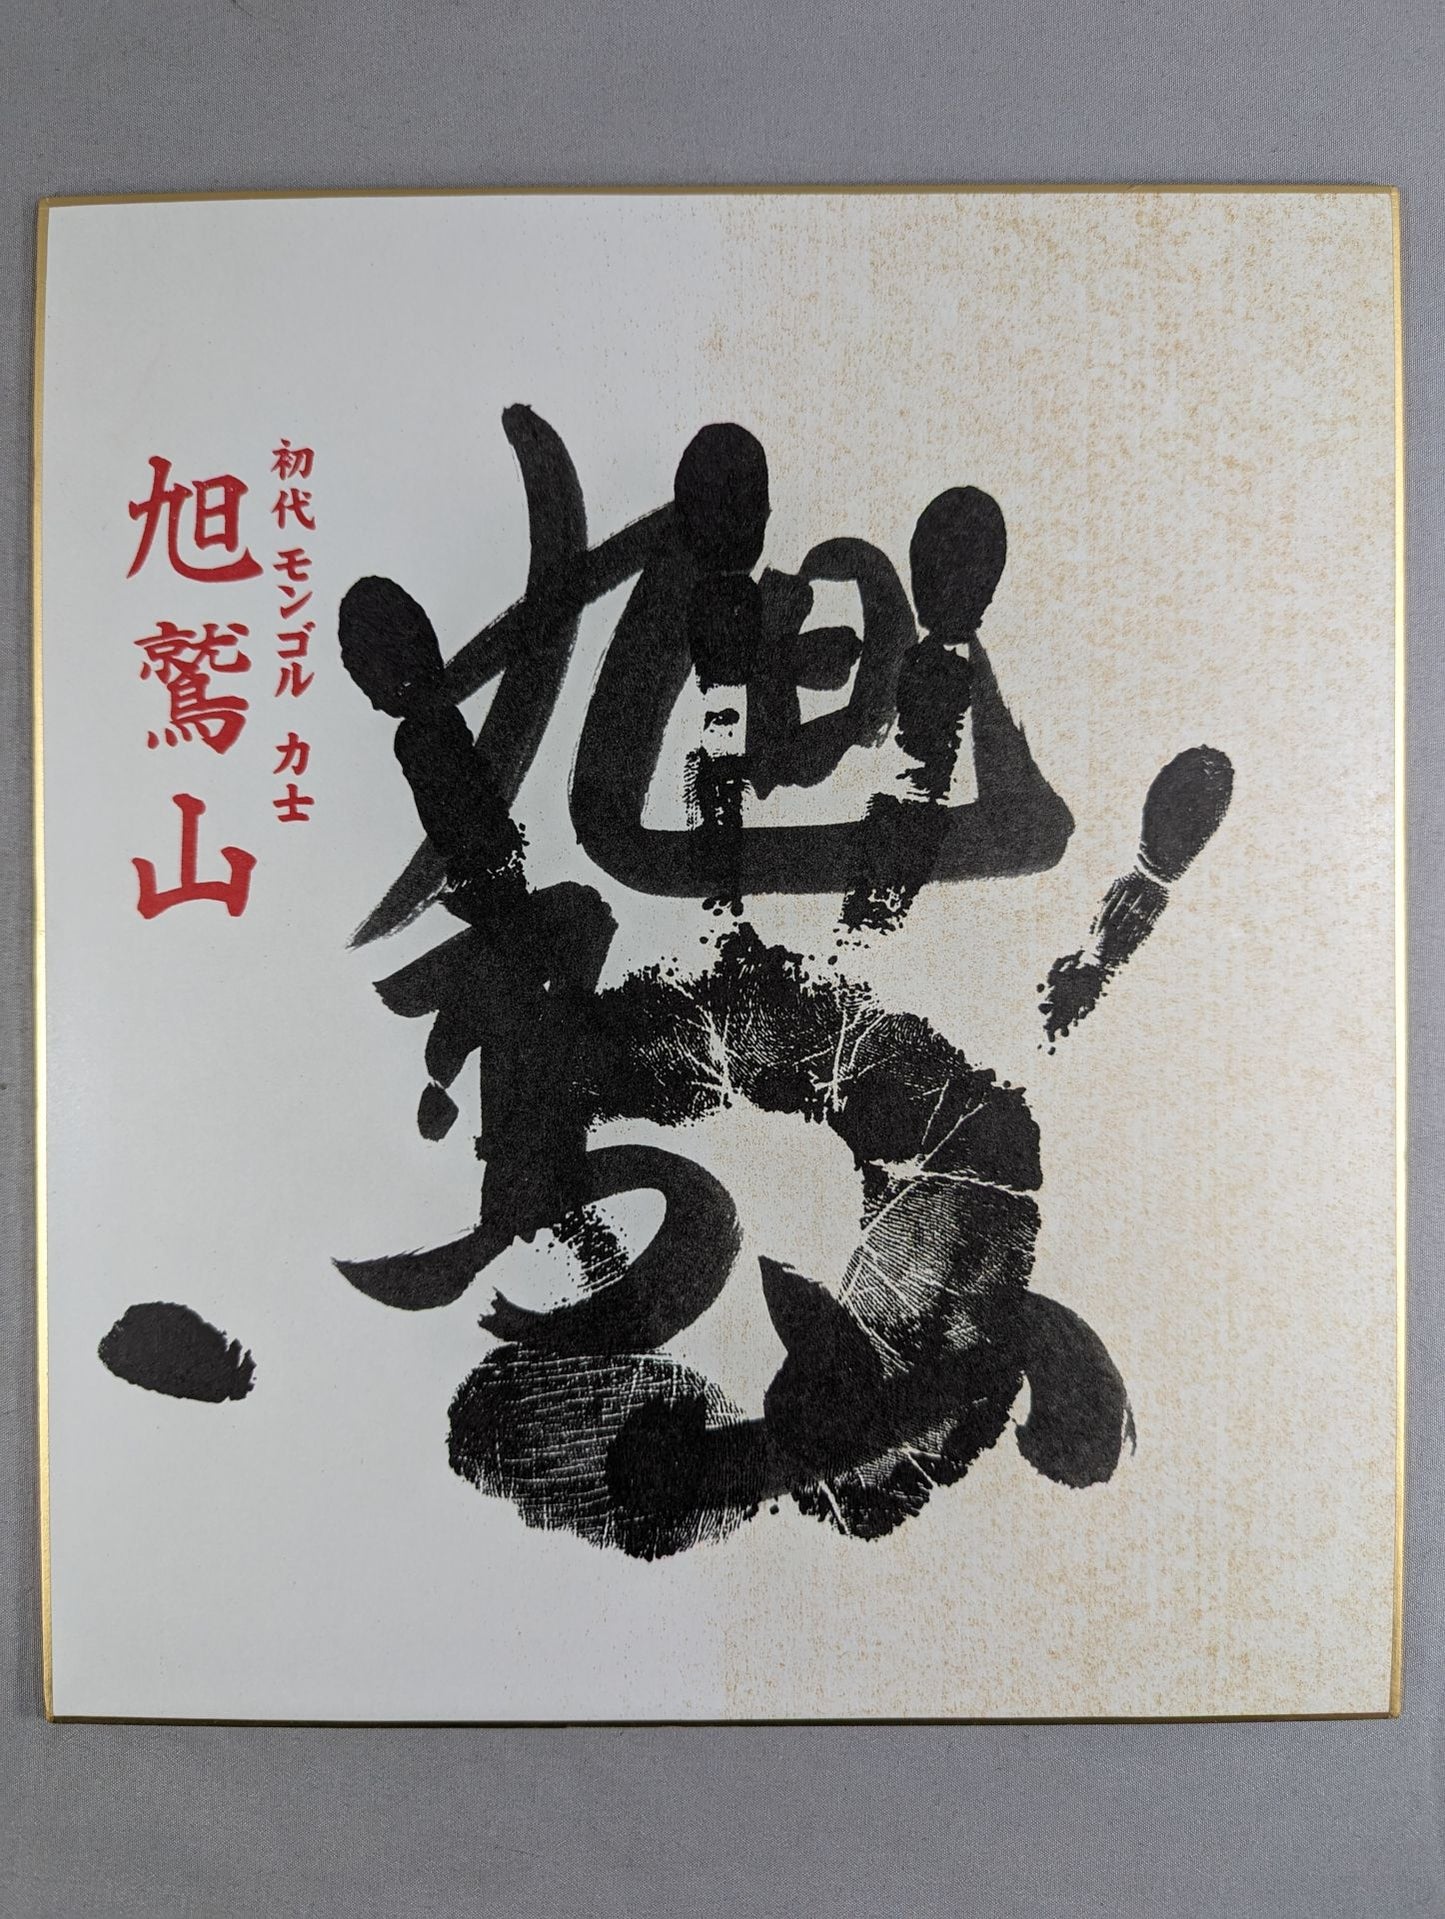 旭鷲山
初代 モンゴル 力士
旭鷲山